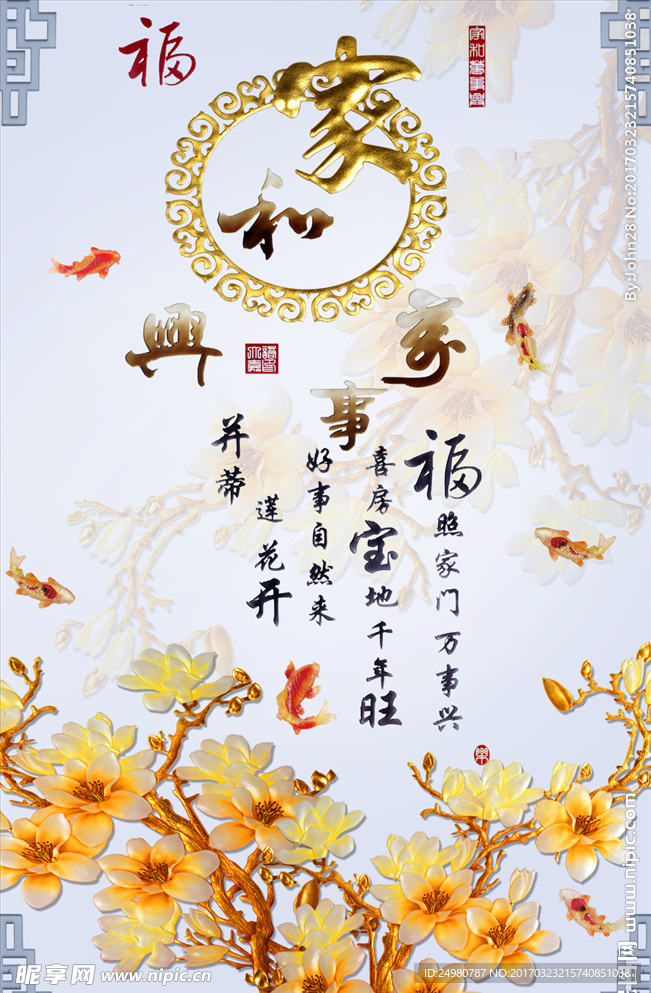 福
家和萬事興
家
和
萬
事
興
福照家门万事兴
喜房宝地千年旺
好事自然来
并蒂
莲花开
By:John28 No:20170323215740851038
昵图网 www.nipic.cn
ID:24980787 NO:20170323215740851038
www.nipic.com